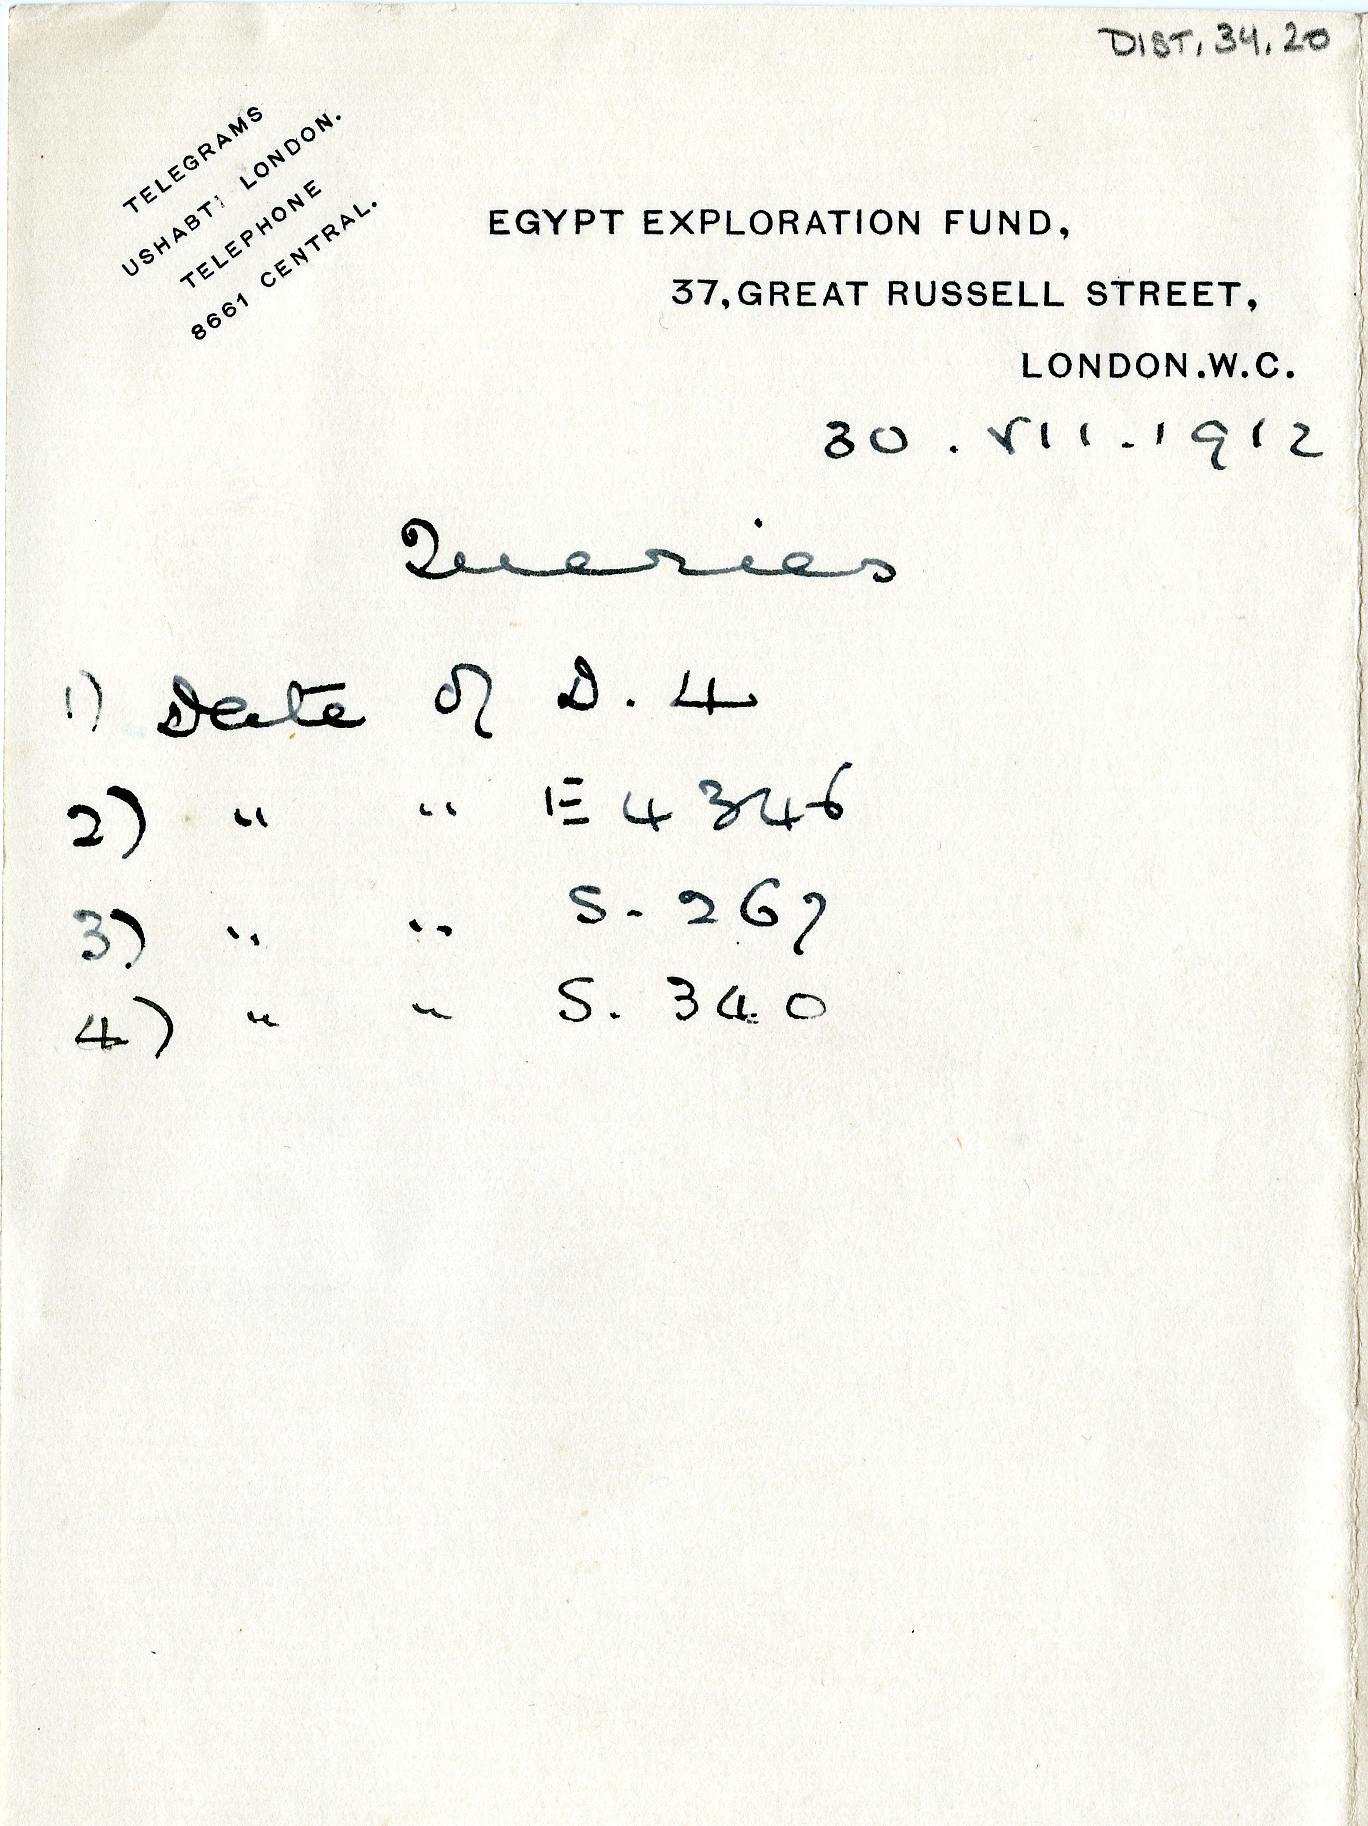 DIST. 34.20
TELEGRAMS
USHABTI LONDON.
TELEPHONE
8661 CENTRAL.
EGYPT EXPLORATION FUND,
37, GREAT RUSSELL STREET,
LONDON. W.C.
30. VII. 1912
Queries
1) Date of D. 4
2) " " E 4346
3) " " S. 267
4) " " S. 340